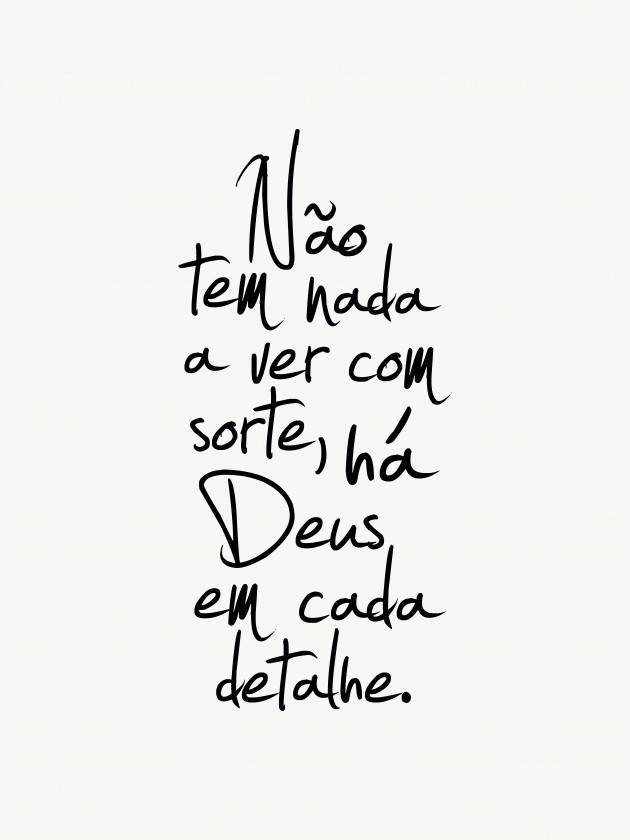 Não
tem nada
a ver com
sorte, há
Deus
em cada
detalhe.